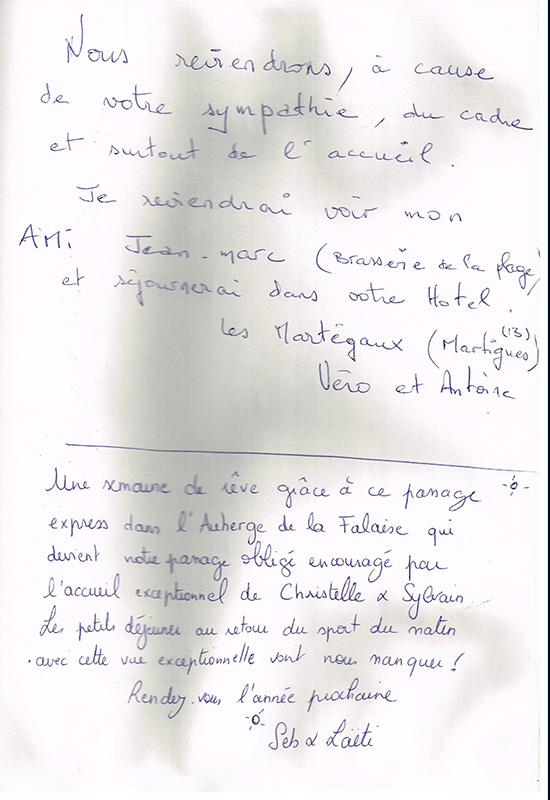 Nous reviendrons, à cause
de votre sympathie, du cadre
et surtout de l'accueil.
Je reviendrai voir mon
AMi Jean-marc (Brasserie de la plage)
et séjournerai dans votre Hotel.
les Martégaux (Martigues) (13)
Véro et Antoine
Une semaine de rêve grâce à ce passage
express dans l'Auberge de la Falaise qui
devient notre passage obligé encouragé par
l'accueil exceptionnel de Christelle & Sylvain.
Les petits déjeuner au retour du sport du matin
avec cette vue exceptionnelle vont nous manquer !
Rendez-vous l'année prochaine
Seb & Laëti